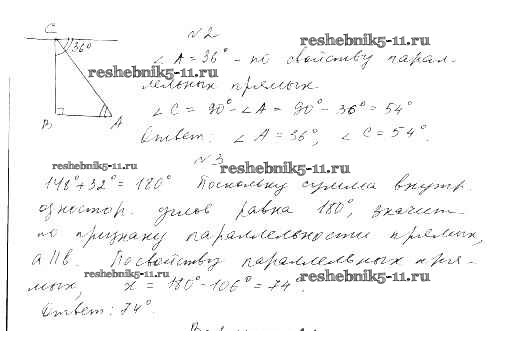 C
N2
36°
reshebnik5-11.ru
∠A = 36° - по свойству парал-
reshebnik5-11.ru
лельных прямых.
∠C = 90° - ∠A = 90° - 36° = 54°
B A
Ответ: ∠A = 36°, ∠C = 54°.
N3
reshebnik5-11.ru
reshebnik5-11.ru
148° + 32° = 180° Поскольку сумма внутр.
одностор. углов равна 180°, значит
по признаку параллельности прямых,
a || b. По свойству параллельных пря-
reshebnik5-11.ru
reshebnik5-11.ru
мых, x = 180° - 106° = 74°.
Ответ: 74°.